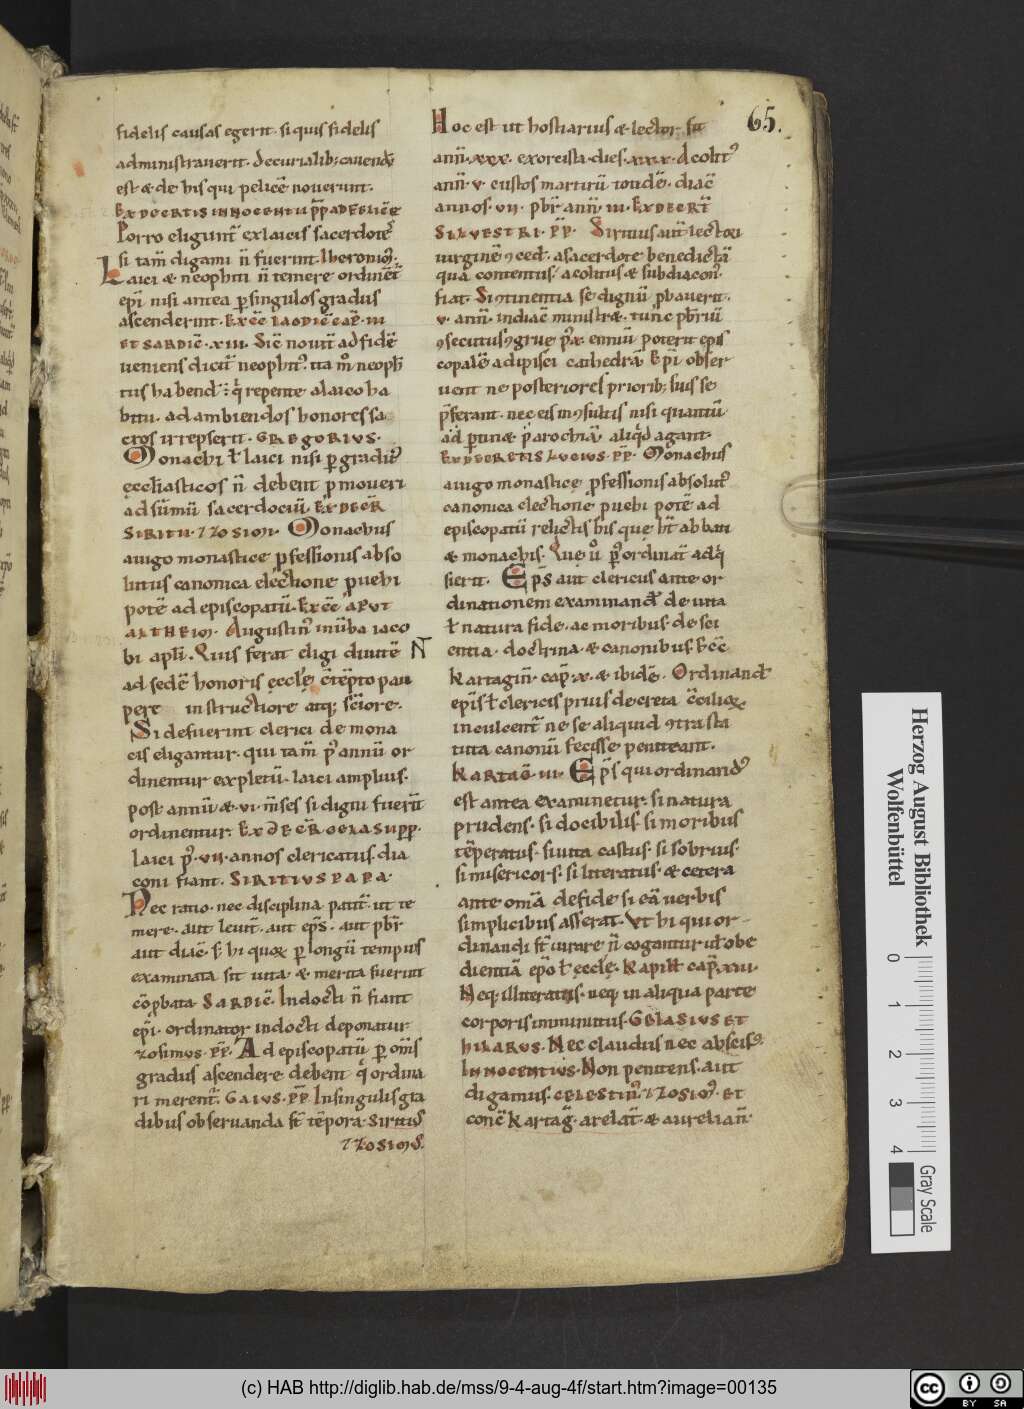 65.
fidelis causas egerit. si quis fidelis
administrauerit. Decurialib; cauend᷒
est & de his qui pelicē nouerunt.
EX DECRETIS INNOCENTII P̄P AD FELICĒ
Porro eligunt̄ ex laicis sacerdotes
si tam̄ digami n̄ fuerint. Iheronim᷒.
Laici & neophiti n̄ temere ordinēt᷒
epi̅ nisi antea p singulos gradus
ascenderint. EX CC̄ LAODICĒ CAP̄. III
ET SARDIC̄. XIII. Sic̄ nouit᷒ ad fidē
ueniens dicit᷒ neophit᷒. ita m̊ neoph̄
tus habend᷒: q̇ repente a laico ha
bitu. ad ambiendos honores sa
cros irrepserit. GREGORIVS.
Monachi ł laici nisi p gradū᷒
ęcclīasticos n̄ debent pmoueri
ad sūmū sacerdociū. EX DECR̄
SIRITII. ⁊ ZOSIMI. Monachus
auigo monastice pfessionis abso
lutus canonica electione puehi
potē ad episcopatū. EX CC̄ APUT
ALTHEIM. Augustin᷒ in ūba iaco
bi apłi. Quis ferat eligi diuitē
ad sedē honoris ęcclę. c̄tēpto pau
pere instructiore atq; sc̄iore.
Si defuerint clerici de mona
cis eligantur. qui tam̄ p᷒ annū or
dinentur expletū. laici amplius.
post annū & vi m̄ses si digni fuer̄t
ordinentur. EX DECR̄ GELASII PP.
Laici p᷒. vii. annos clericatus. dia
coni fiant. SIRITIVS PAPA.
Nec ratio. nec disciplina. patit᷒. ut te
mere. aut leuit᷒. aut ep̄s. aut pbr̄
aut diac̄. s; hi quoꝝ p longū tempus
examinata sit uita. & merita fuerint
cōpbata. SARDIC̄. Indocti n̄ fiant
epī. ordinator indocti deponatur
ZOSIMUS. P̄P. Ad episcopatū p om̄s
gradus ascendere debent q̇ ordina
ri merent᷒. GAIVS. P̄P. In singulis gra
dibus obseruanda st̄ tēpora. SIRITIUS
⁊ ZOSIMUS.
Hoc est ut hostiarius & lector sit
ann̄. xxx. exorcista. dies. xxx. Acolit᷒
ann̄. v. custos martirū ioudē. diac̄
annos. vii. pbr̄ ann̄. iii. EX DECRT̄
SILVESTRI. P̄P. Siritius aut̄ lectori
uirginē ꝯced̄. a sacerdote benedictā
qua contentus. acolitus & subdiacon᷒
fiat. Si ꝯtinentia se dignū pbauerit.
v. ann̄. in diac̄ ministrā. tunc pbr̄iū
ꝯsecutus ꝯgrue p᷒ x. enniū poterit epis
copalē adipisci cathedrā. Epi obser
uent ne posteriores priorib; suis se
p̄ferant. nec eis inꝯsultis nisi quantū
ad ptinā parochiā. aliq̇d agant.
EX DECRETIS LVCIVS. P̄P. Monachus
auigo monastice pfessionis absolut᷒
canonica electione puehi potē ad
episcopatū relictis his que ht̄ abbati
& monachis. Que u̇ p᷒ ordinat̄ adq̇
sierit. Ep̄s aut clericus ante or
dinationem examinand̄ de uita
ł natura fide. ac moribus. de sci
entia. doctrina. & canonibus. EX CC̄
Kartagin̄. cap̄. x. & ibidē. Ordinand̄
epis ł clericis prius decreta c̄cilioꝝ
inculcent᷒ ne se aliquid ꝯtra sta
tuta canonū fecisse peniteant.
KARTAG̅. III. Ep̄s qui ordinand᷒
est antea examinetur. si natura
prudens. si docibilis. si moribus
tēperatus. si uita castus. si sobrius.
si misericors. si literatus. & cetera
ante om̄ia de fide. si eā uerbis
simplicibus asserat. Vt hi qui or-
dinandi st̄ iurare n̄ cogantur ut obe
dientiā epō ł ęcclę. Kapitł cap̄. xiii.
Neq; illiteratus. neq; in aliqua parte
corporis imminutus. GELASIUS ET
HILARUS. Nec claudus nec abscis᷒.
INNOCENTIUS. Non penitens. aut
digamus. CELESTIN᷒. ⁊ ZOSIM᷒. ET
conc̄ Kartag̅. arelat̄. & aurelian̄.
Herzog August Bibliothek
Wolfenbüttel
0 1 2 3 4
Gray Scale
(c) HAB http://diglib.hab.de/mss/9-4-aug-4f/start.htm?image=00135
cc BY SA